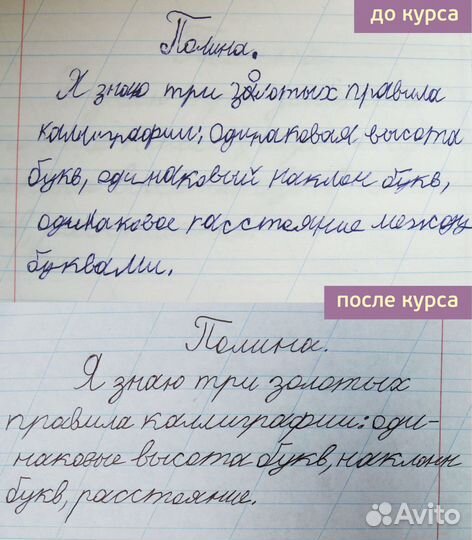 до курса
Полина.
Я знаю три золотых правила
каллиграфии: одинаковая высота
букв, одинаковый наклон букв,
одинаковое расстояние между
буквами.
после курса
Полина.
Я знаю три золотых
правила каллиграфии: оди-
наковые высота букв, наклон
букв, расстояние.
Avito